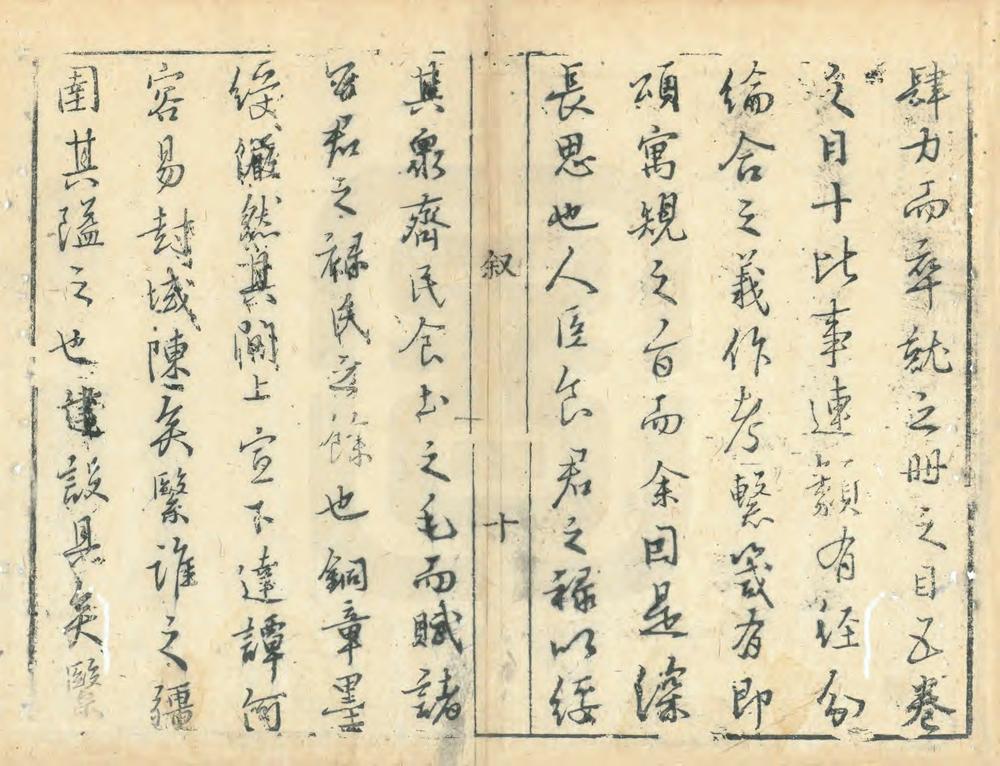 肆力而卒就之冊之目五卷
之目十比事連類有经分
綸合之義作考繫箋有即
頌寓規之旨而余因是深
長思也人臣食君之祿以綏
叙
十
其衆齊民食土之毛而賦諸
君之祿民之餘也銅章墨
綬儼然其間上宣下達譚何
容易封域陳矣繄誰之疆
圉其隘之也建設具矣繄